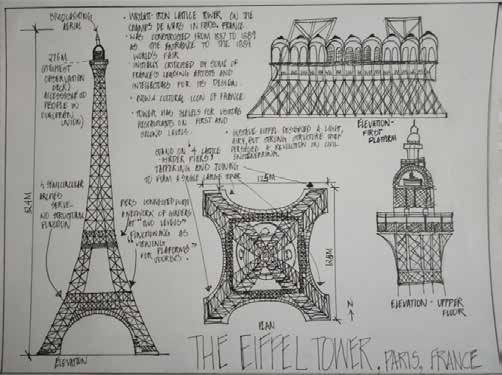 BROADCASTING
AERIAL
276M
(HIGHEST
OBSERVATION
DECK
ACCESSIBLE TO
PEOPLE IN
EUROPEAN
UNION)
324M
4 SEMICIRCULAR
ARCHES
SERVE
NO STRUCTURAL
FUNCTION
ELEVATION
• WROUGHT-IRON LATTICE TOWER ON THE
CHAMPS DE MARS IN PARIS, FRANCE.
• WAS CONSTRUCTED FROM 1887 TO 1889
AS THE ENTRANCE TO THE 1889
WORLD'S FAIR
• INITIALLY CRITICISED BY SOME OF
FRANCE'S LEADING ARTISTS AND
INTELLECTUALS FOR ITS DESIGN.
• NOW A CULTURAL ICON OF FRANCE
• TOWER HAS 3 LEVELS FOR VISITORS
RESTAURANTS ON FIRST AND
SECOND LEVELS.
• GUSTAVE EIFFEL DESIGNED A LIGHT,
AIRY, BUT STRONG STRUCTURE THAT
PRESAGED A REVOLUTION IN CIVIL
ENGINEERING.
STAND ON 4 LATTICE
-GIRDER PIERS,
TAPERING AND JOINING
TO FORM A SINGLE LARGE
125M
PIERS CONNECTED WITH
NETWORK OF GIRDERS
AT "TWO LEVELS"
FUNCTIONING AS
"VIEWING
PLATFORMS"
FOR
TOURISTS.
125M
N
PLAN
ELEVATION-
FIRST
PLATFORM
ELEVATION - UPPER
FLOOR
THE EIFFEL TOWER, PARIS, FRANCE